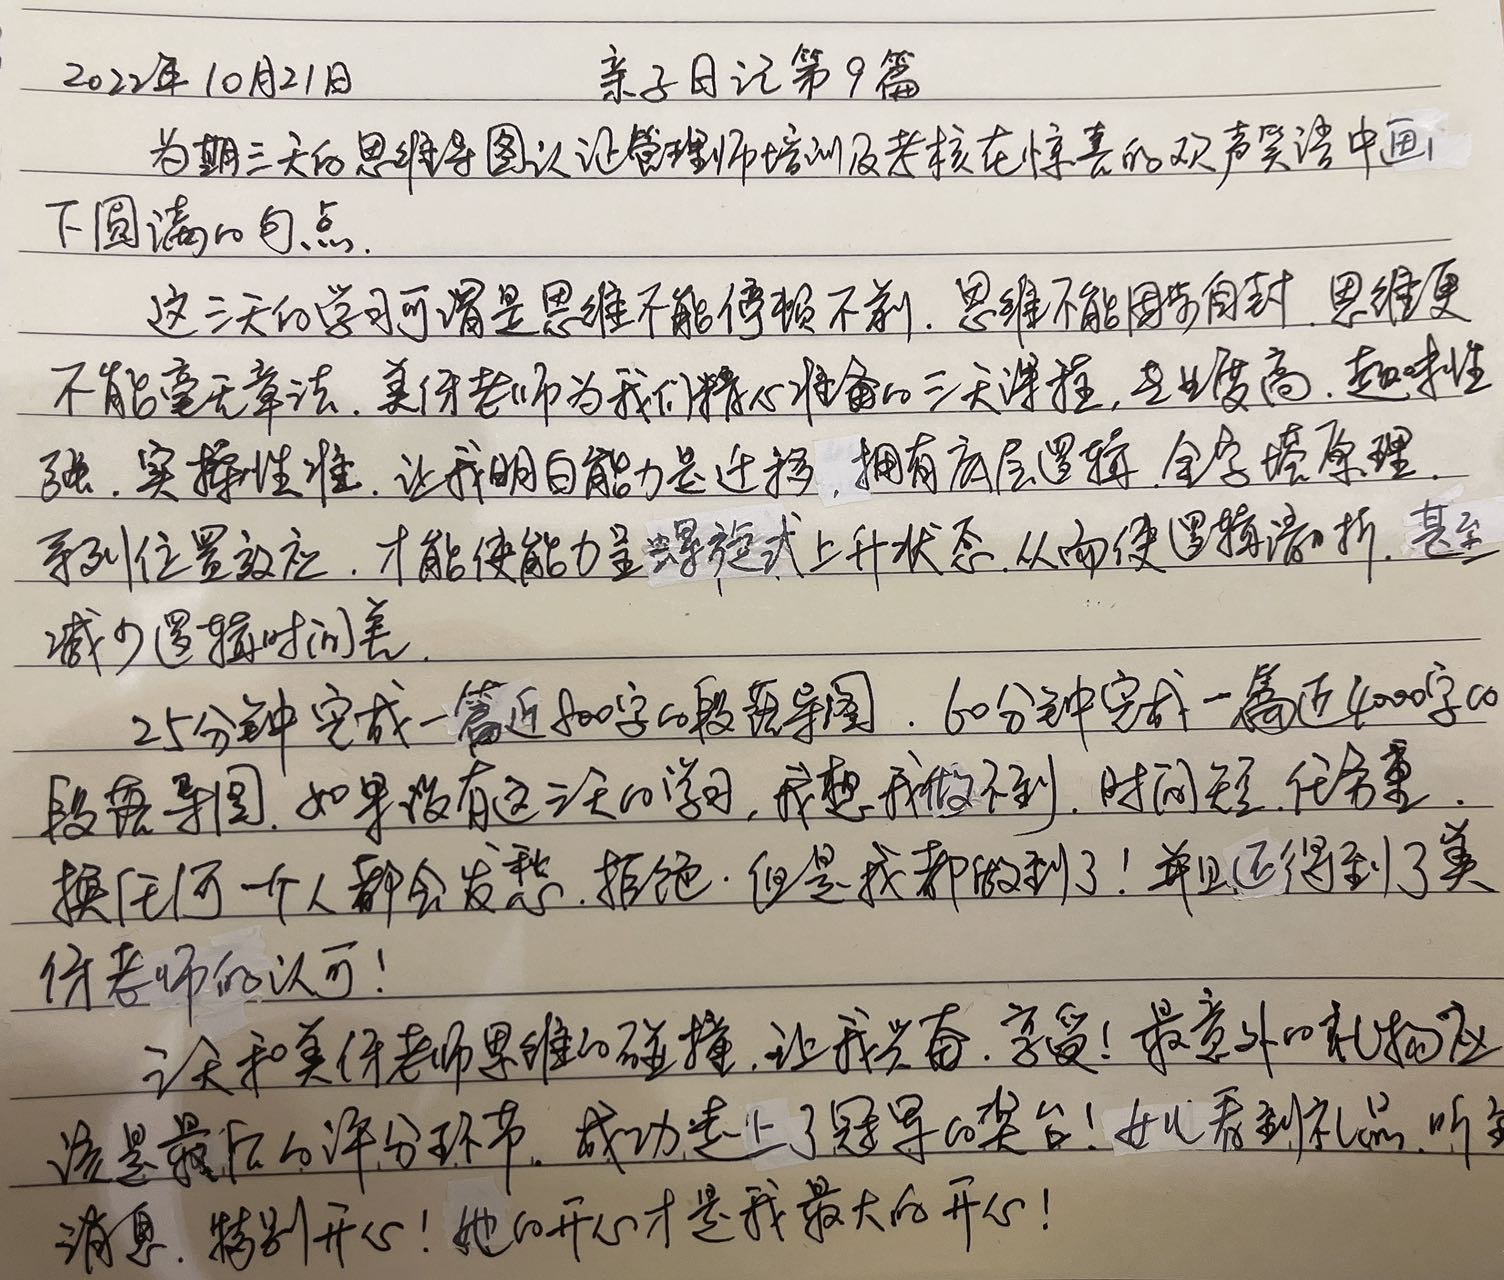 2022年10月21日 亲子日记第9篇
为期三天的思维导图认证管理师培训及考核在惊喜的欢声笑语中画
下圆满的句点.
这三天的学习可谓是思维不能停顿不前.思维不能固步自封.思维更
不能毫无章法.美伢老师为我们精心准备的三天课程,专业度高.趣味性
强.实操性准.让我明白能力是迁移,拥有底层逻辑.金字塔原理.
系列位置效应.才能使能力呈螺旋式上升状态.从而使逻辑清晰.甚至
减少逻辑时间差.
25分钟完成一篇近800字的段落导图.60分钟完成一篇近4000字的
段落导图.如果没有这三天的学习,我想我做不到.时间短.任务重.
换任何一个人都会发愁.拒绝.但是我都做到了!并且还得到了美
伢老师的认可!
三天和美伢老师思维的碰撞.让我兴奋.享受!最意外的礼物应
该是最后的评分环节.成功走上了冠军的奖台!女儿看到礼品.听到
消息.特别开心!她的开心才是我最大的开心!